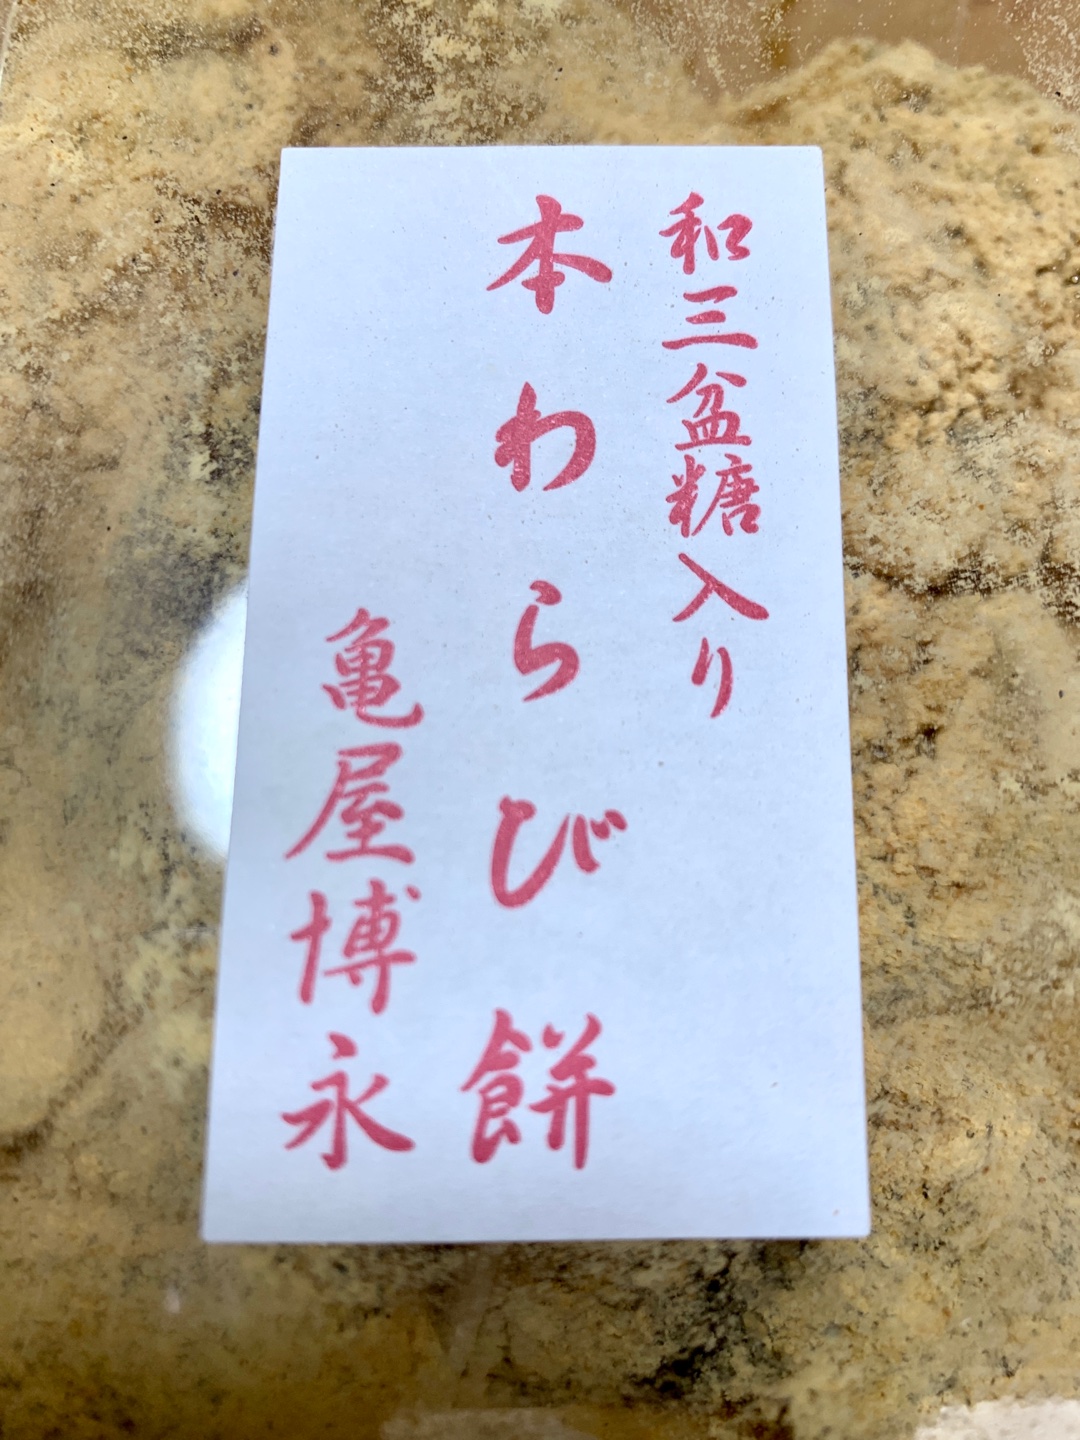 和三盆糖入り
本わらび餅
亀屋博永